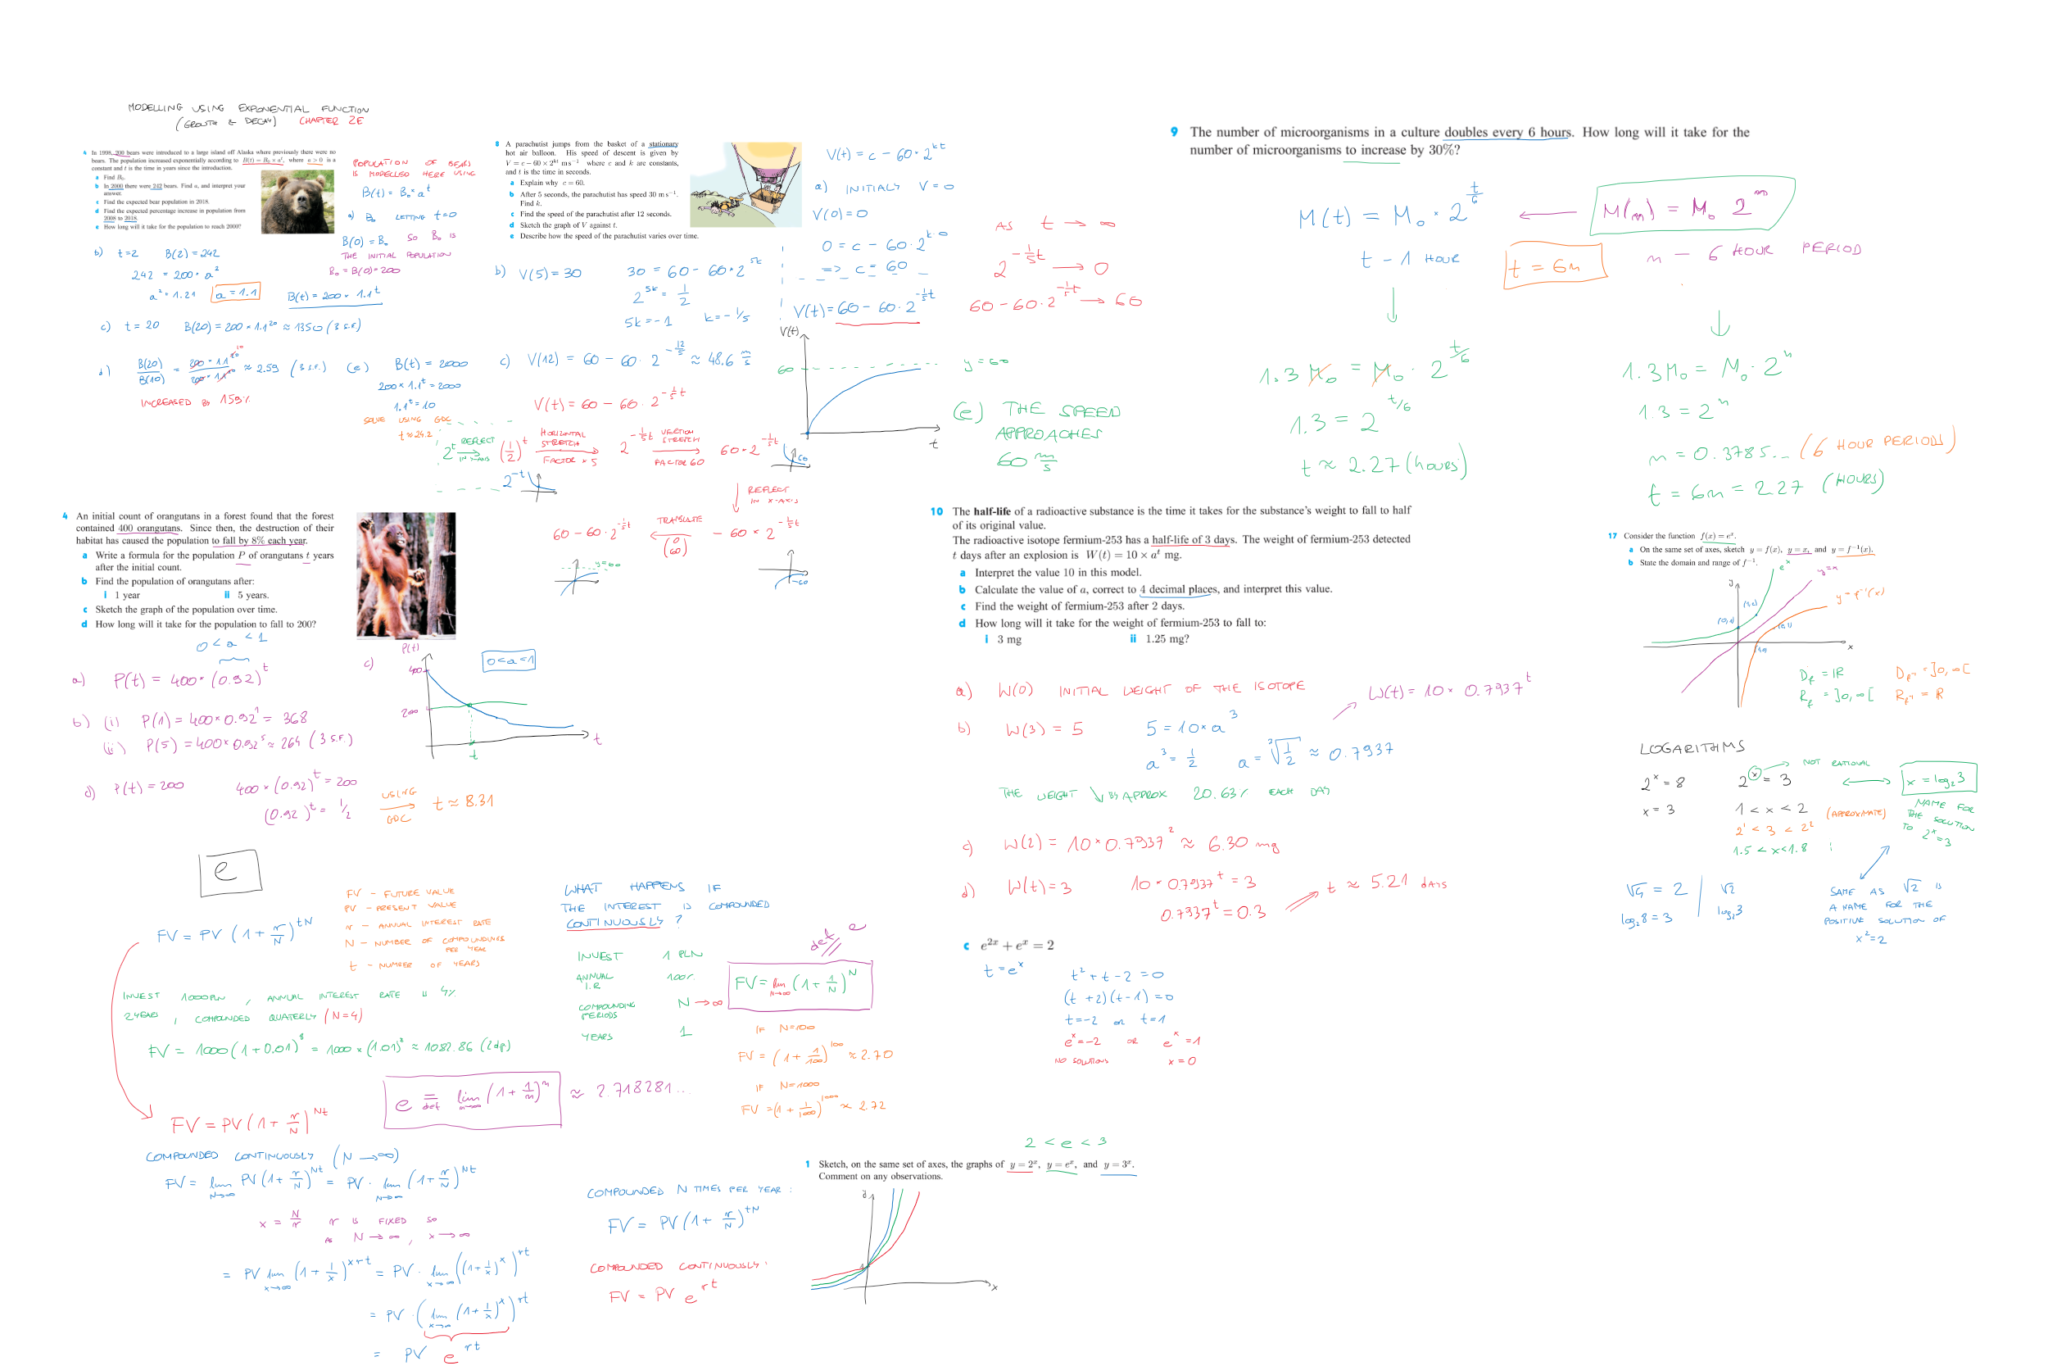 MODELLING USING EXPONENTIAL FUNCTION
(GROWTH & DECAY) CHAPTER 2E
6 In 1998, 200 bears were introduced to a large island off Alaska where previously there were no
bears. The population increased exponentially according to B(t) = B₀ × aᵗ, where a > 0 is a
constant and t is the time in years since the introduction.
a Find B₀.
b In 2000 there were 242 bears. Find a, and interpret your
answer.
c Find the expected bear population in 2018.
d Find the expected percentage increase in population from
2008 to 2018.
e How long will it take for the population to reach 2000?
POPULATION OF BEARS
IS MODELLED HERE USING
B(t) = B₀ · aᵗ
a) B₀ LETTING t=0
B(0) = B₀ SO B₀ IS
THE INITIAL POPULATION
B₀ = B(0) = 200
b) t=2 B(2) = 242
242 = 200 · a²
a² = 1.21 a = 1.1 B(t) = 200 × 1.1ᵗ
c) t = 20 B(20) = 200 × 1.1²⁰ ≈ 1350 (3 s.f.)
d) B(20)/B(10) = ≈ 2.59 (3 s.f.)
INCREASED BY 159%
(e) B(t) = 2000
200 × 1.1ᵗ = 2000
1.1ᵗ = 10
SOLVE USING GDC
t ≈ 24.2
8 A parachutist jumps from the basket of a stationary
hot air balloon. His speed of descent is given by
V = c − 60 × 2ᵏᵗ m s⁻¹ where c and k are constants,
and t is the time in seconds.
a Explain why c = 60.
b After 5 seconds, the parachutist has speed 30 m s⁻¹.
Find k.
c Find the speed of the parachutist after 12 seconds.
d Sketch the graph of V against t.
e Describe how the speed of the parachutist varies over time.
V(t) = c − 60 · 2^(kt)
a) INITIALLY V = 0
V(0) = 0
0 = c − 60 · 2^(k·0)
=> c = 60
V(t) = 60 − 60 · 2^(-1/5 t)
AS t → ∞
2^(-1/5 t) → 0
60 − 60 · 2^(-1/5 t) → 60
b) V(5) = 30 30 = 60 − 60 × 2^(5k)
2^(5k) = 1/2
5k = −1 k = −1/5
c) V(12) = 60 − 60 · 2^(-12/5) ≈ 48.6 m/s
V(t)
60
y = 60
t
V(t) = 60 − 60 · 2^(-1/5 t)
2ᵗ REFLECT (1/2)ᵗ HORIZONTAL STRETCH FACTOR × 5 2^(-1/5 t) VERTICAL STRETCH FACTOR 60 60 · 2^(-1/5 t)
2^(-t)
REFLECT
IN X-AXIS
60 − 60 · 2^(-1/5 t) TRANSLATE (0 60) − 60 × 2^(-1/5 t)
(e) THE SPEED
APPROACHES
60 m/s
9 The number of microorganisms in a culture doubles every 6 hours. How long will it take for the
number of microorganisms to increase by 30%?
M(t) = M₀ · 2^(t/6) M(n) = M₀ 2ⁿ
t − 1 HOUR t = 6n n − 6 HOUR PERIOD
1.3 M₀ = M₀ · 2^(t/6)
1.3 = 2^(t/6)
t ≈ 2.27 (hours)
1.3 M₀ = M₀ · 2ⁿ
1.3 = 2ⁿ
n = 0.3785... (6 HOUR PERIODS)
t = 6n = 2.27 (HOURS)
4 An initial count of orangutans in a forest found that the forest
contained 400 orangutans. Since then, the destruction of their
habitat has caused the population to fall by 8% each year.
a Write a formula for the population P of orangutans t years
after the initial count.
b Find the population of orangutans after:
i 1 year ii 5 years.
c Sketch the graph of the population over time.
d How long will it take for the population to fall to 200?
0 < a < 1
a) P(t) = 400 · (0.92)ᵗ
b) (i) P(1) = 400 × 0.92¹ = 368
(ii) P(5) = 400 × 0.92⁵ ≈ 264 (3 s.f.)
c) P(t)
400
200
0 < a < 1
t
t
d) P(t) = 200 400 × (0.92)ᵗ = 200
(0.92)ᵗ = 1/2 USING GDC t ≈ 8.31
10 The half-life of a radioactive substance is the time it takes for the substance's weight to fall to half
of its original value.
The radioactive isotope fermium-253 has a half-life of 3 days. The weight of fermium-253 detected
t days after an explosion is W(t) = 10 × aᵗ mg.
a Interpret the value 10 in this model.
b Calculate the value of a, correct to 4 decimal places, and interpret this value.
c Find the weight of fermium-253 after 2 days.
d How long will it take for the weight of fermium-253 to fall to:
i 3 mg ii 1.25 mg?
a) W(0) INITIAL WEIGHT OF THE ISOTOPE W(t) = 10 × 0.7937ᵗ
b) W(3) = 5 5 = 10 × a³
a³ = 1/2 a = ³√(1/2) ≈ 0.7937
THE WEIGHT ↘ BY APPROX 20.63% EACH DAY
c) W(2) = 10 × 0.7937² ≈ 6.30 mg
d) W(t) = 3 10 · 0.7937ᵗ = 3 t ≈ 5.21 DAYS
0.7937ᵗ = 0.3
17 Consider the function f(x) = eˣ.
a On the same set of axes, sketch y = f(x), y = x, and y = f⁻¹(x).
b State the domain and range of f⁻¹.
y eˣ y=x
y = f⁻¹(x)
x
D_f = ℝ D_f⁻¹ = ]0, ∞[
R_f = ]0, ∞[ R_f⁻¹ = ℝ
LOGARITHMS
2ˣ = 8 2ˣ = 3 NOT RATIONAL x = log₂3
x = 3 1 < x < 2 (APPROXIMATE)
2¹ < 3 < 2²
1.5 < x < 1.8
NAME FOR
THE SOLUTION
TO 2ˣ = 3
√4 = 2 √2
log₂8 = 3 log₂3
SAME AS √2 IS
A NAME FOR THE
POSITIVE SOLUTION OF
x² = 2
e
FV = PV (1 + r/N)^(tN)
FV − FUTURE VALUE
PV − PRESENT VALUE
r − ANNUAL INTEREST RATE
N − NUMBER OF COMPOUNDINGS
PER YEAR
t − NUMBER OF YEARS
INVEST 1000 PLN, ANNUAL INTEREST RATE IS 4%
2 YEARS, COMPOUNDED QUATERLY (N=4)
FV = 1000 (1 + 0.01)⁸ = 1000 × (1.01)⁸ ≈ 1082.86 (2dp)
WHAT HAPPENS IF
THE INTEREST IS COMPOUNDED
CONTINUOUSLY?
INVEST 1 PLN
ANNUAL I.R 100%
COMPOUNDING PERIODS N → ∞
YEARS 1
def e
FV = lim n→∞ (1 + 1/N)^N
IF N=100
FV = (1 + 1/100)^100 ≈ 2.70
IF N=1000
FV = (1 + 1/1000)^1000 ≈ 2.72
e = def lim n→∞ (1 + 1/n)ⁿ ≈ 2.718281...
FV = PV (1 + r/N)^(Nt)
COMPOUNDED CONTINUOUSLY (N → ∞)
FV = lim N→∞ PV (1 + r/N)^(Nt) = PV · lim N→∞ (1 + r/N)^(Nt)
x = N/r r IS FIXED SO
AS N → ∞, x → ∞
= PV lim x→∞ (1 + 1/x)^(xrt) = PV · lim x→∞ ((1 + 1/x)^x)^(rt)
= PV · (lim x→∞ (1 + 1/x)^x)^(rt)
= PV e^(rt)
COMPOUNDED N TIMES PER YEAR:
FV = PV (1 + r/N)^(tN)
COMPOUNDED CONTINUOUSLY:
FV = PV e^(rt)
c e²ˣ + eˣ = 2
t = eˣ t² + t − 2 = 0
(t + 2)(t − 1) = 0
t = −2 or t = 1
eˣ = −2 OR eˣ = 1
NO SOLUTIONS x = 0
2 < e < 3
1 Sketch, on the same set of axes, the graphs of y = 2ˣ, y = eˣ, and y = 3ˣ.
Comment on any observations.
y
x